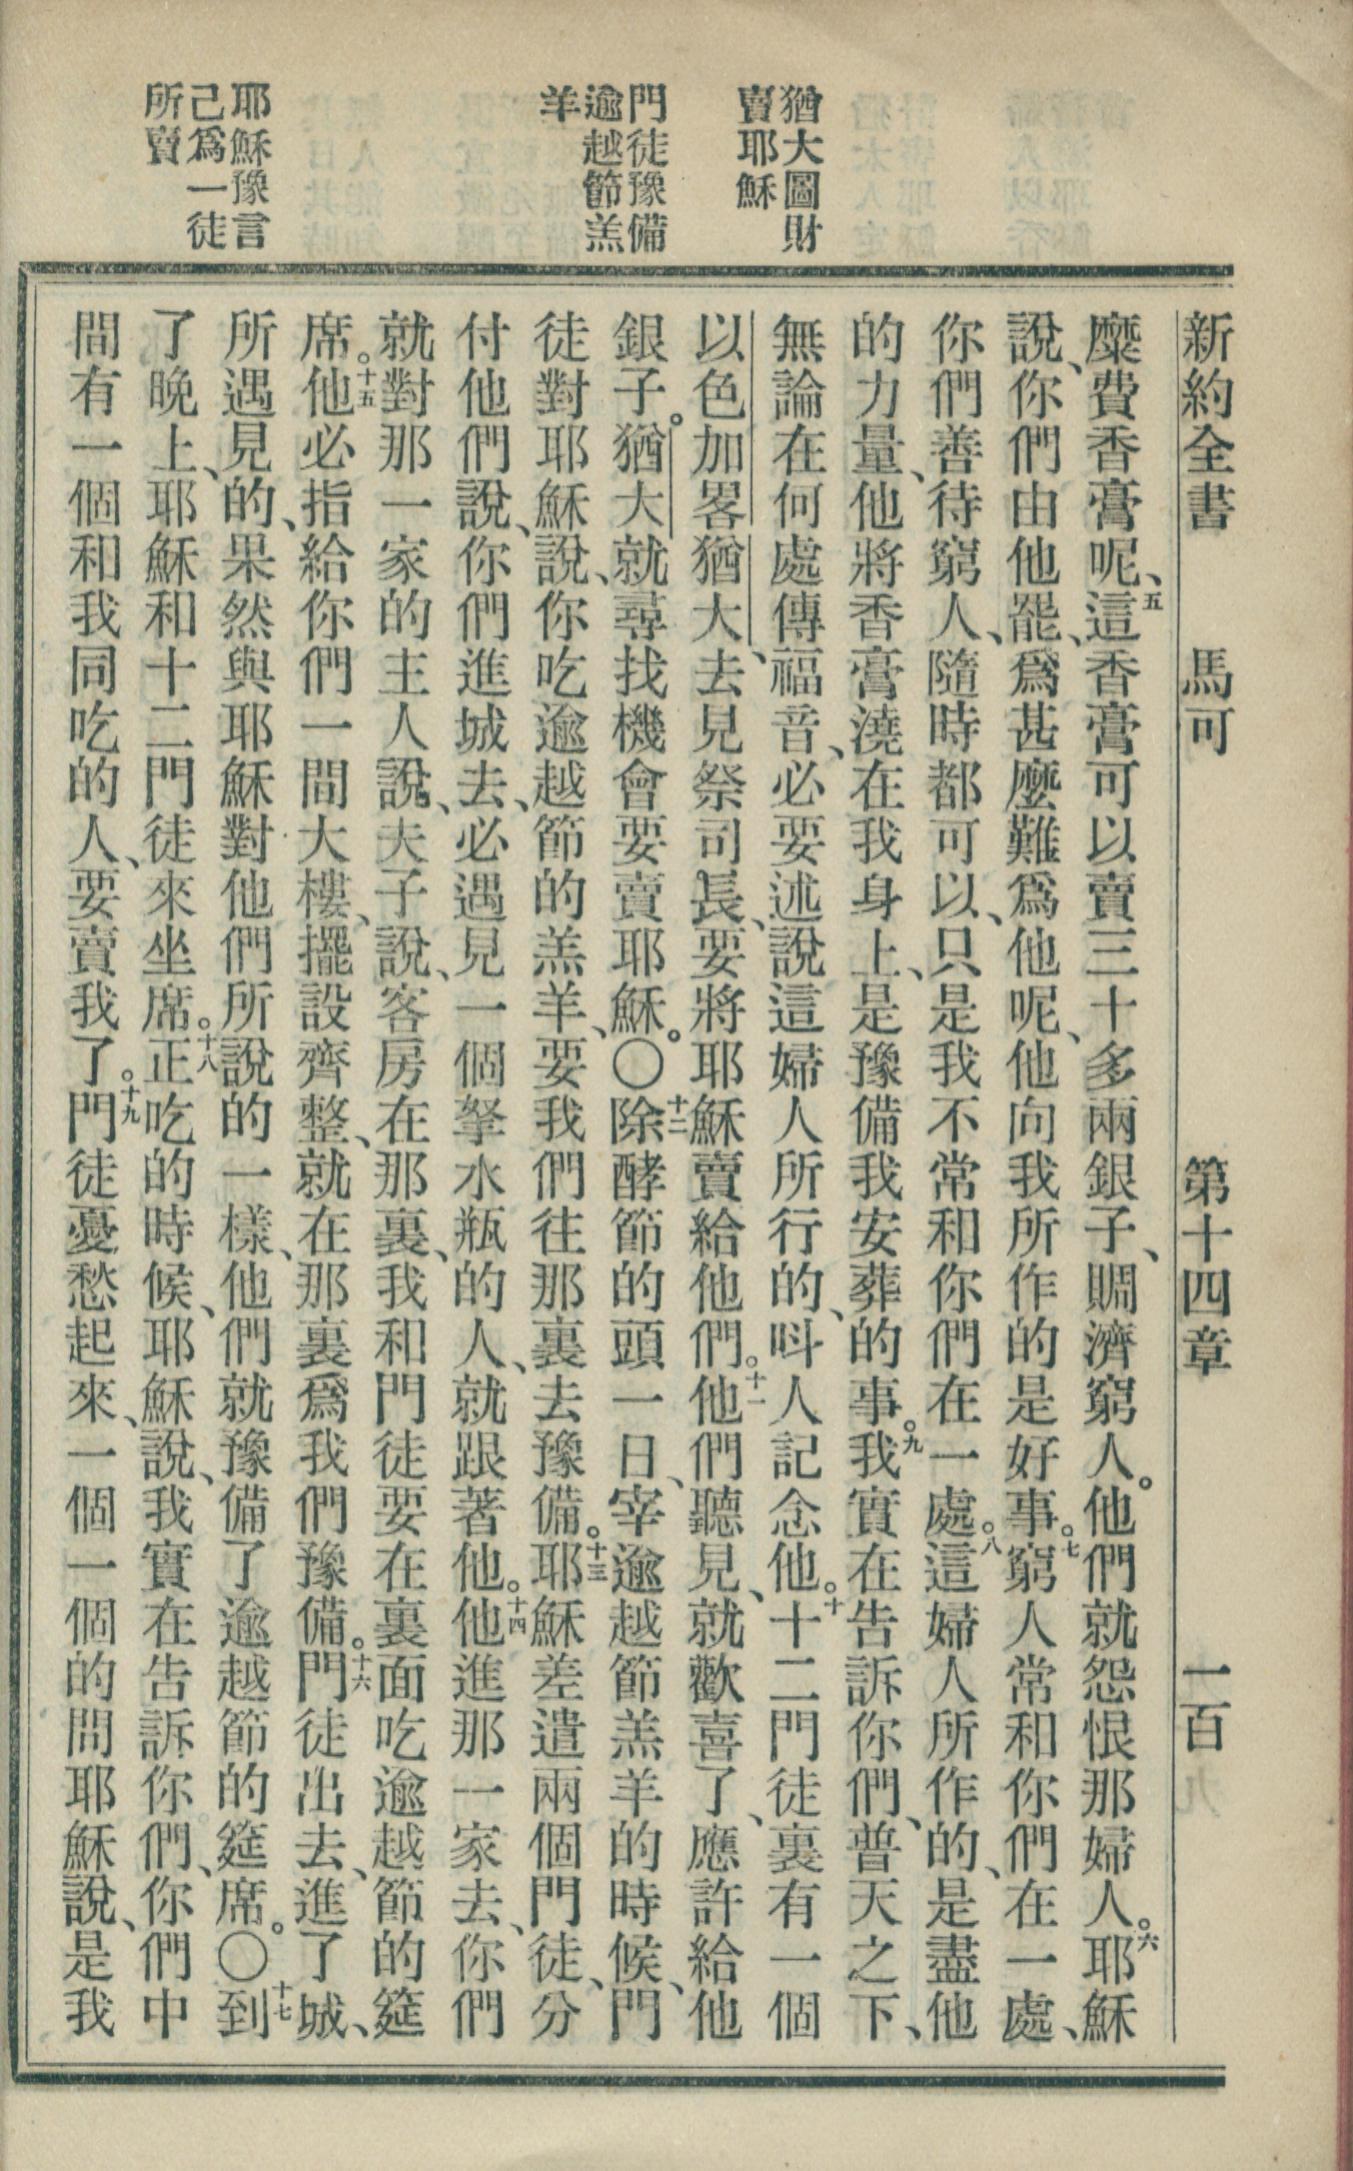 新約全書 馬可 第十四章 一百九
猶大圖財
賣耶穌
門徒豫備
逾越節羔
羊
耶穌豫言
己爲一徒
所賣
糜費香膏呢、五這香膏可以賣三十多兩銀子、賙濟窮人。他們就怨恨那婦人。六耶穌
說、你們由他罷、爲甚麼難爲他呢、他向我所作的是好事。七窮人常和你們在一處、
你們善待窮人、隨時都可以、只是我不常和你們在一處。八這婦人所作的、是盡他
的力量、他將香膏澆在我身上、是豫備我安葬的事。九我實在告訴你們、普天之下、
無論在何處傳福音、必要述說這婦人所行的、呌人記念他。十十二門徒裏有一個
以色加畧猶大、去見祭司長、要將耶穌賣給他們。十一他們聽見、就歡喜了、應許給他
銀子。猶大就尋找機會要賣耶穌。〇十二除酵節的頭一日、宰逾越節羔羊的時候、門
徒對耶穌說、你吃逾越節的羔羊、要我們往那裏去豫備。十三耶穌差遣兩個門徒、分
付他們說、你們進城去、必遇見一個拏水瓶的人、就跟著他。十四他進那一家去、你們
就對那一家的主人說、夫子說、客房在那裏、我和門徒要在裏面吃逾越節的筵
席。十五他必指給你們一間大樓、擺設齊整、就在那裏爲我們豫備。十六門徒出去、進了城、
所遇見的、果然與耶穌對他們所說的一樣、他們就豫備了逾越節的筵席。〇十七到
了晚上、耶穌和十二門徒來坐席。十八正吃的時候、耶穌說、我實在告訴你們、你們中
間有一個和我同吃的人、要賣我了。十九門徒憂愁起來、一個一個的問耶穌說、是我